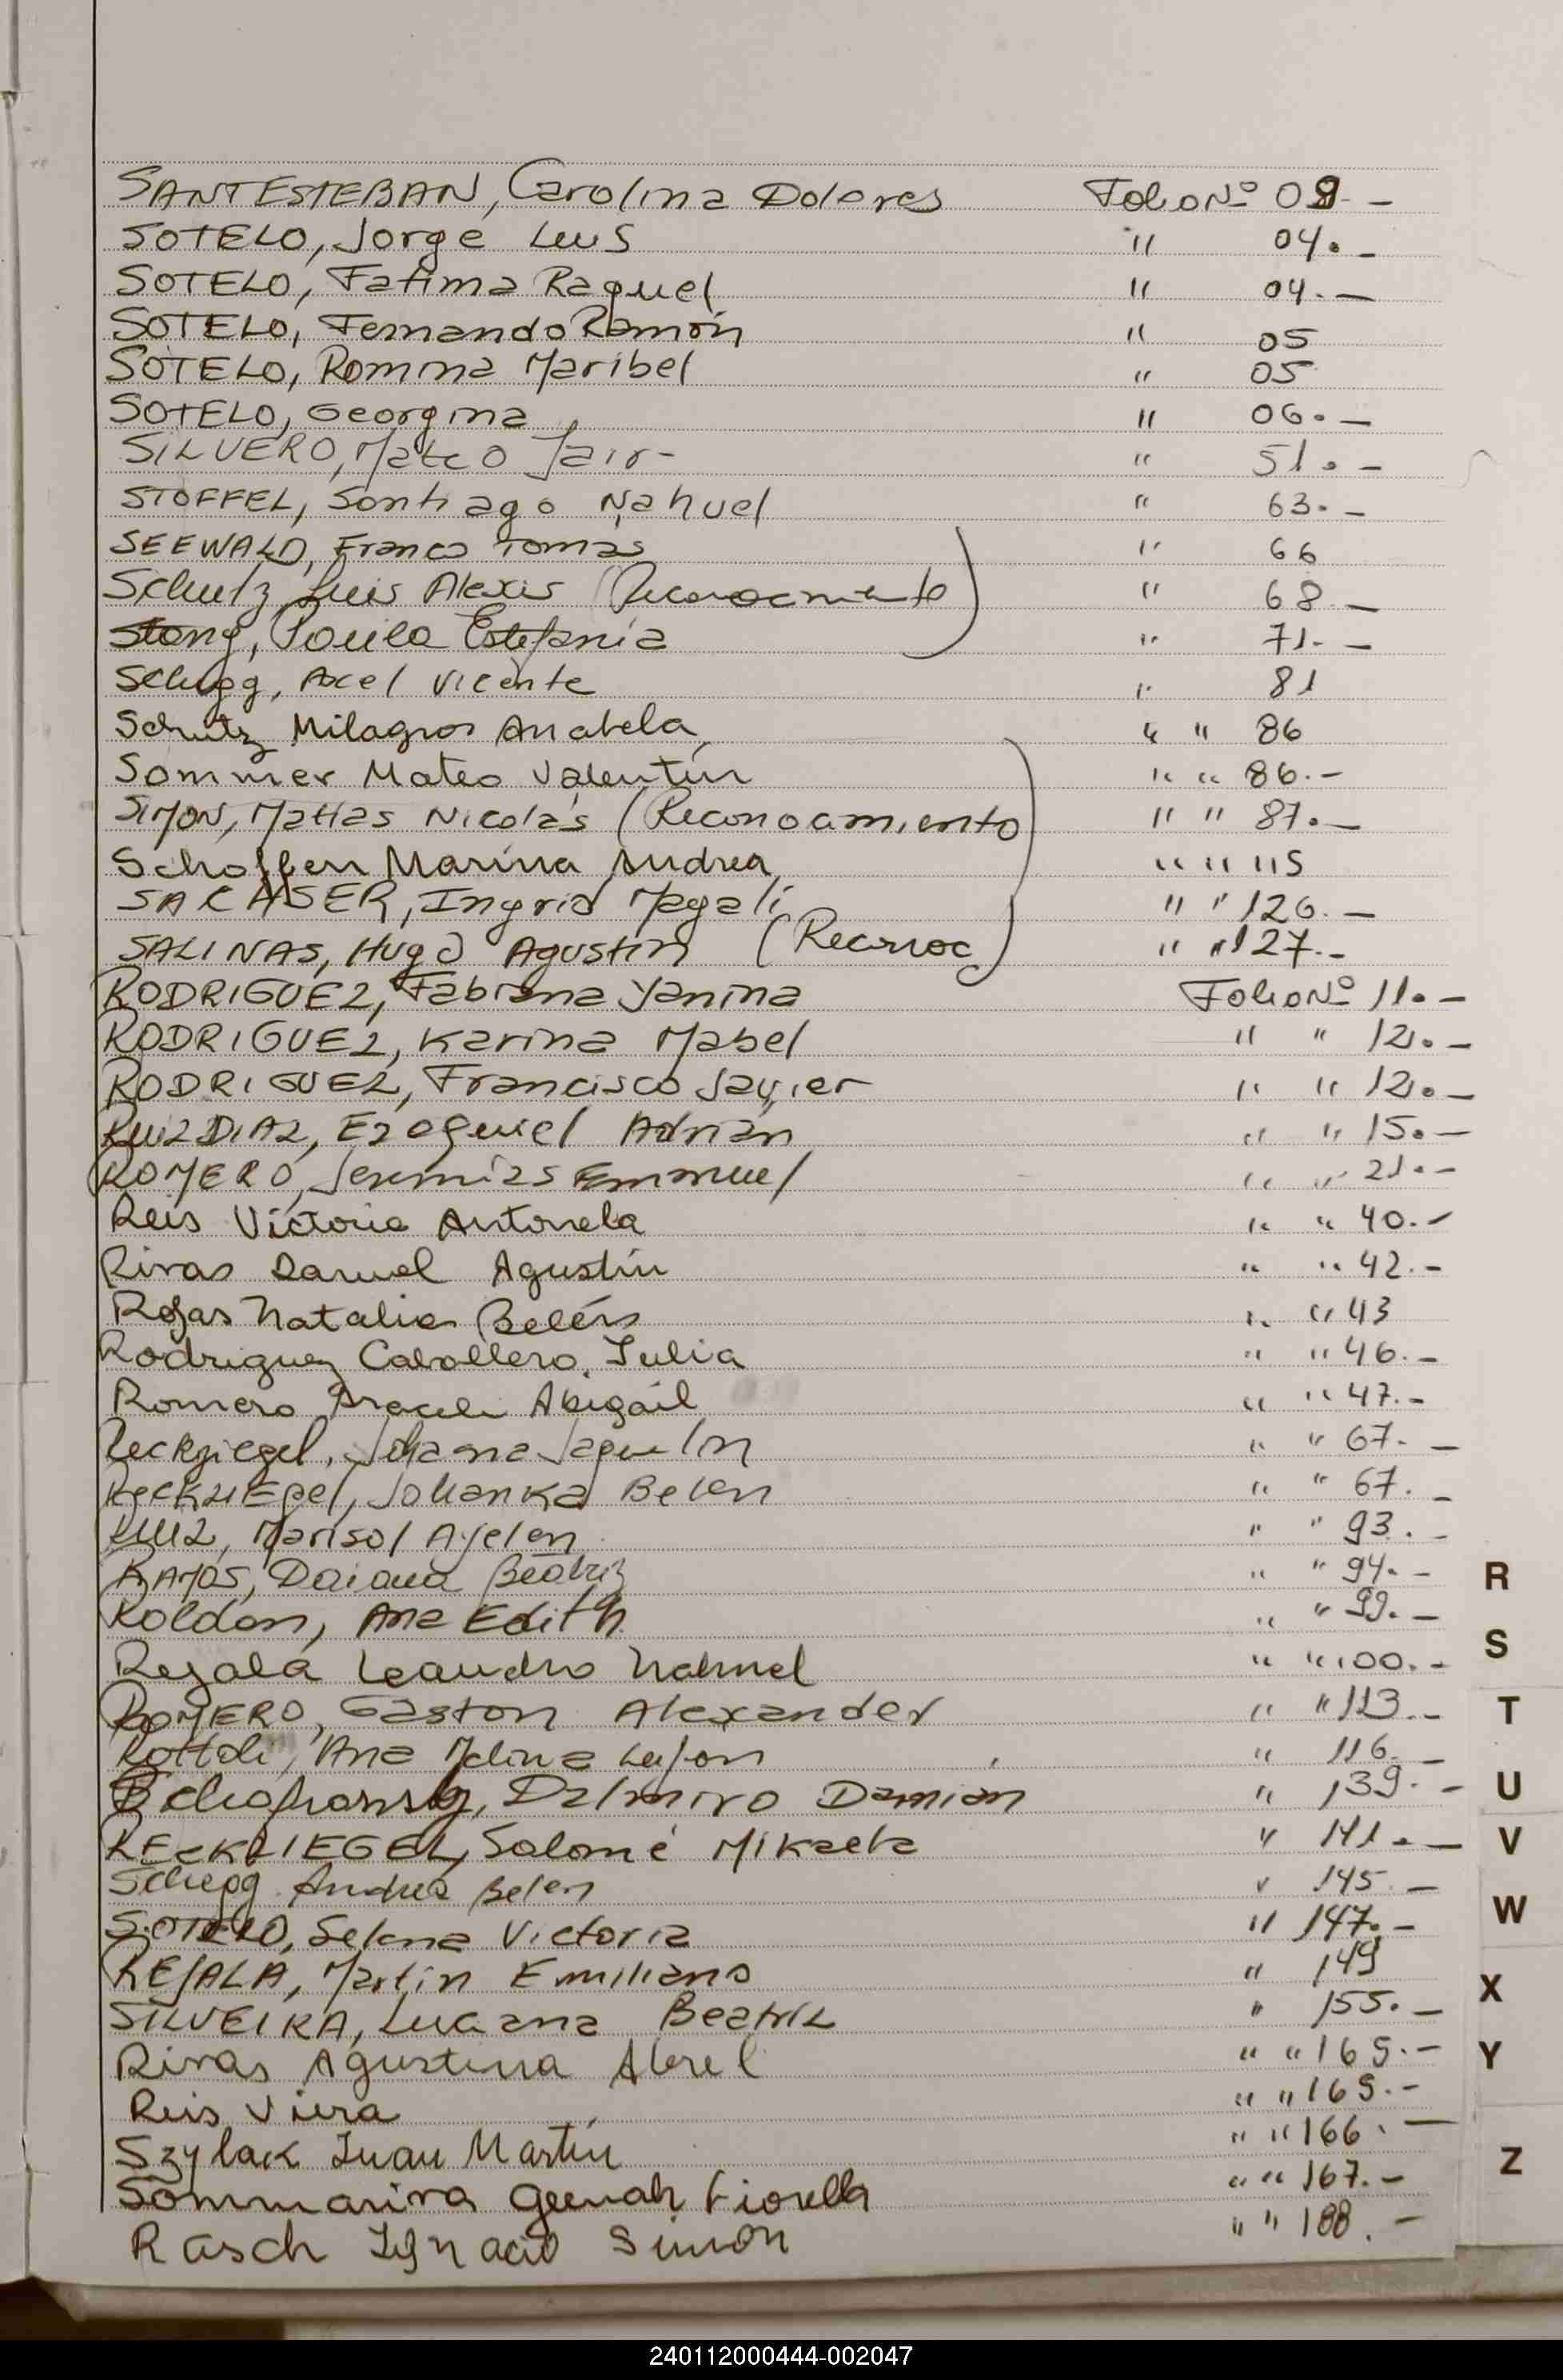 SANTESTEBAN, Carolina Dolores Folio Nº 09.-
SOTELO, Jorge Luis " 04.-
SOTELO, Fatima Raquel " 04.-
SOTELO, Fernando Ramón " 05
SOTELO, Romina Maribel " 05
SOTELO, Georgina " 06.-
SILVERO, Mateo Jair- " 51.-
STOFFEL, Santiago Nahuel " 63.-
SEEWALD, Franco Tomas " 66
Schutz, Luis Alexis (Reconocimiento) " 68.-
Stang, Paula Estefania " 71.-
Schegg, Axel Vicente " 81
Schutz Milagros Anabela " " 86
Sommer Mateo Valentín " " 86.-
SIMON, Matias Nicolás (Reconocimiento) " " 87.-
Schoffen Marina Andrea " " 115
SACHSER, Ingrid Magali " " 126.-
SALINAS, Hugo Agustin (Reconoc) " " 127.-
RODRIGUEZ, Fabiana Yanina Folio Nº 11.-
RODRIGUEZ, Karina Mabel " " 12.-
RODRIGUEZ, Francisco Javier " " 12.-
RUIZ DIAZ, Ezequiel Adrián " " 15.-
ROMERO, Jeremias Emanuel " " 21.-
Reis Victoria Antonela " " 40.-
Rivas Daniel Agustín " " 42.-
Rojas Natalia Belén " " 43
Rodriguez Caballero, Julia " " 46.-
Romero Araceli Abigail " " 47.-
Reckziegel, Johana Jaquelin " " 67.-
RecKZIEgel, Johanka Belen " " 67.-
RUIZ, Marisol Ayelen " " 93.-
RAMOS, Daiana Beatriz " " 94.-
Roldan, Ana Edith " " 99.-
Rejala Leandro Nahuel " " 100.-
ROMERO, Gaston Alexander " " 113.-
Rottoli, Ana Lujan " 116.-
Dalmiro Damián " 139.-
RECKZIEGEL, Salomé Mikaela " 141.-
Schegg Andrea Belen " 145.-
SOTELO, Selena Victoria " 147.-
REJALA, Martin Emiliano " 149
SILVEIRA, Luciana Beatriz " 155.-
Rivas Agustina Abril " " 165.-
Reis Viera " " 165.-
Szylak Juan Martín " " 166.-
Sommariva Fiorella " " 167.-
Rasch Ignacio Simón " " 188.-
R
S
T
U
V
W
X
Y
Z
240112000444-002047